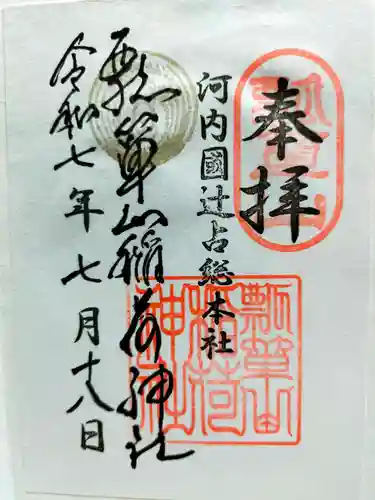 奉拝
瓢箪山
河内國辻占総本社
瓢箪山稲荷神社
瓢箪山稲荷神社
令和七年七月十八日